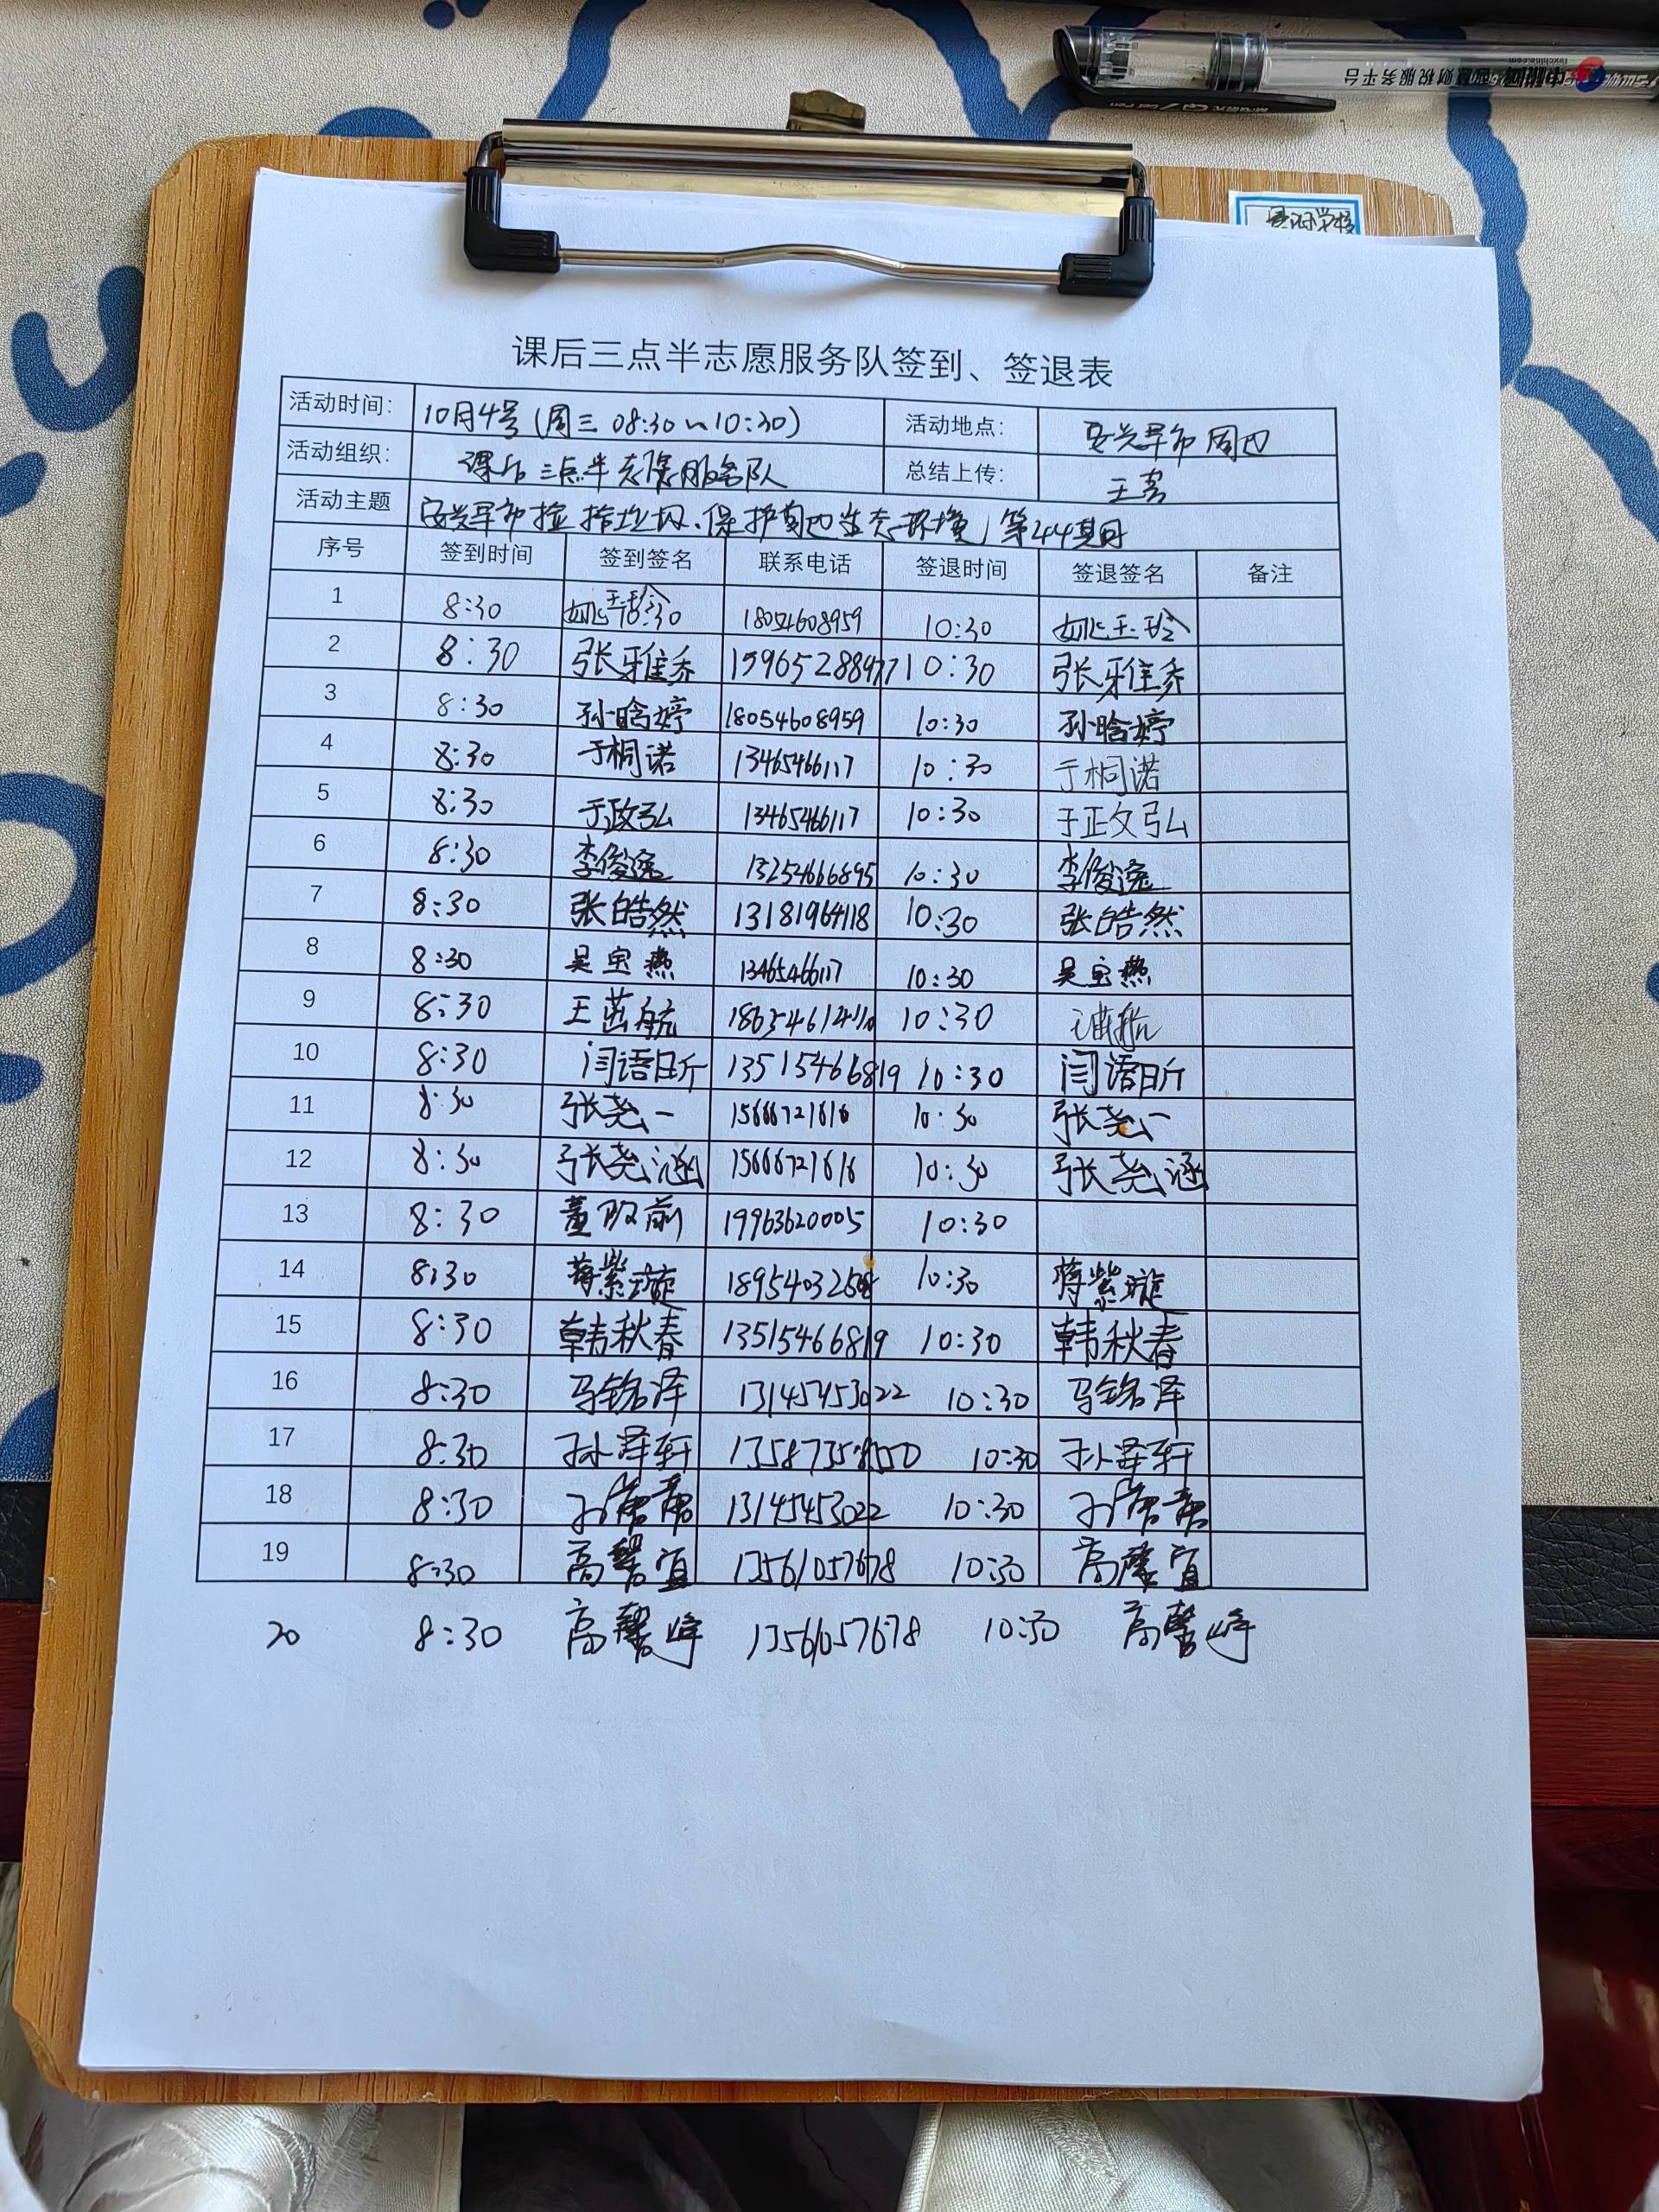 中税网 智慧财税服务平台
课后三点半志愿服务队签到、签退表
活动时间: 10月4号(周三 08:30~10:30) 活动地点: 安兴早市周边
活动组织: 课后三点半志愿服务队 总结上传: 王
活动主题 安兴早市捡拾垃圾、保护周边生态环境,第244期
序号 签到时间 签到签名 联系电话 签退时间 签退签名 备注
1 8:30 姚玉玲 18054608959 10:30 姚玉玲
2 8:30 张雅乔 15965288977 10:30 张雅乔
3 8:30 孙晗婷 18054608959 10:30 孙晗婷
4 8:30 于桐诺 13465466117 10:30 于桐诺
5 8:30 于政弘 13465466117 10:30 于政弘
6 8:30 李俊逸 13254666895 10:30 李俊逸
7 8:30 张皓然 13181964118 10:30 张皓然
8 8:30 吴宝燕 13465466117 10:30 吴宝燕
9 8:30 王茁航 10:30
10 8:30 闫语昕 13515466819 10:30 闫语昕
11 8:30 张尧一 15666721616 10:30 张尧一
12 8:30 张尧涵 15666721616 10:30 张尧涵
13 8:30 董政前 19963620005 10:30
14 8:30 蒋紫璇 10:30 蒋紫璇
15 8:30 韩秋春 13515466819 10:30 韩秋春
16 8:30 马铭泽 13145453022 10:30 马铭泽
17 8:30 孙泽轩 13587358550 10:30 孙泽轩
18 8:30 13145453022 10:30
19 8:30 高馨宜 13561057678 10:30 高馨宜
20 8:30 高馨峰 13561057678 10:30 高馨峰